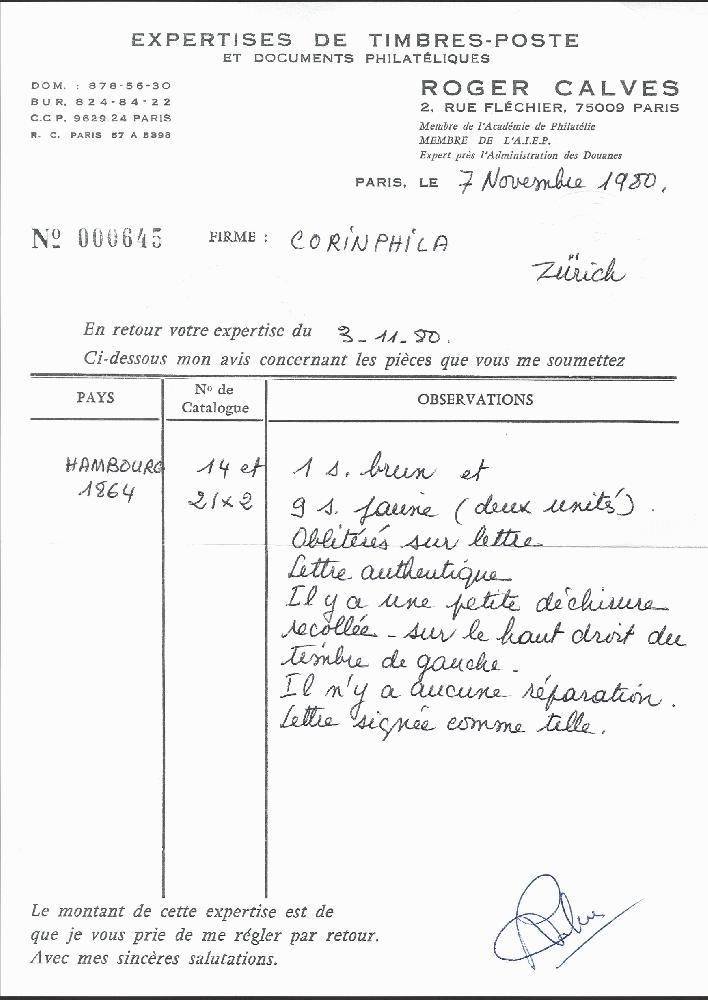 EXPERTISES DE TIMBRES-POSTE
ET DOCUMENTS PHILATÉLIQUES
DOM. : 878-56-30
BUR. 824-84-22
C.C.P. 9629.24 PARIS
R. C. PARIS 57 A 8398
ROGER CALVES
2, RUE FLÉCHIER, 75009 PARIS
Membre de l'Académie de Philatélie
MEMBRE DE L'A.I.E.P.
Expert près l'Administration des Douanes
PARIS, LE 7 Novembre 1980.
Nº 000645 FIRME : CORINPHILA
Zürich
En retour votre expertise du 3-11-80.
Ci-dessous mon avis concernant les pièces que vous me soumettez
PAYS
Nº de
Catalogue
OBSERVATIONS
HAMBOURG
1864
14 et
21x2
1 s. brun et
9 s. jaune (deux unités).
Oblitérés sur lettre
Lettre authentique
Il y a une petite déchirure
recollée - sur le haut droit du
timbre de gauche.
Il n'y a aucune réparation.
Lettre signée comme telle.
Le montant de cette expertise est de
que je vous prie de me régler par retour.
Avec mes sincères salutations.